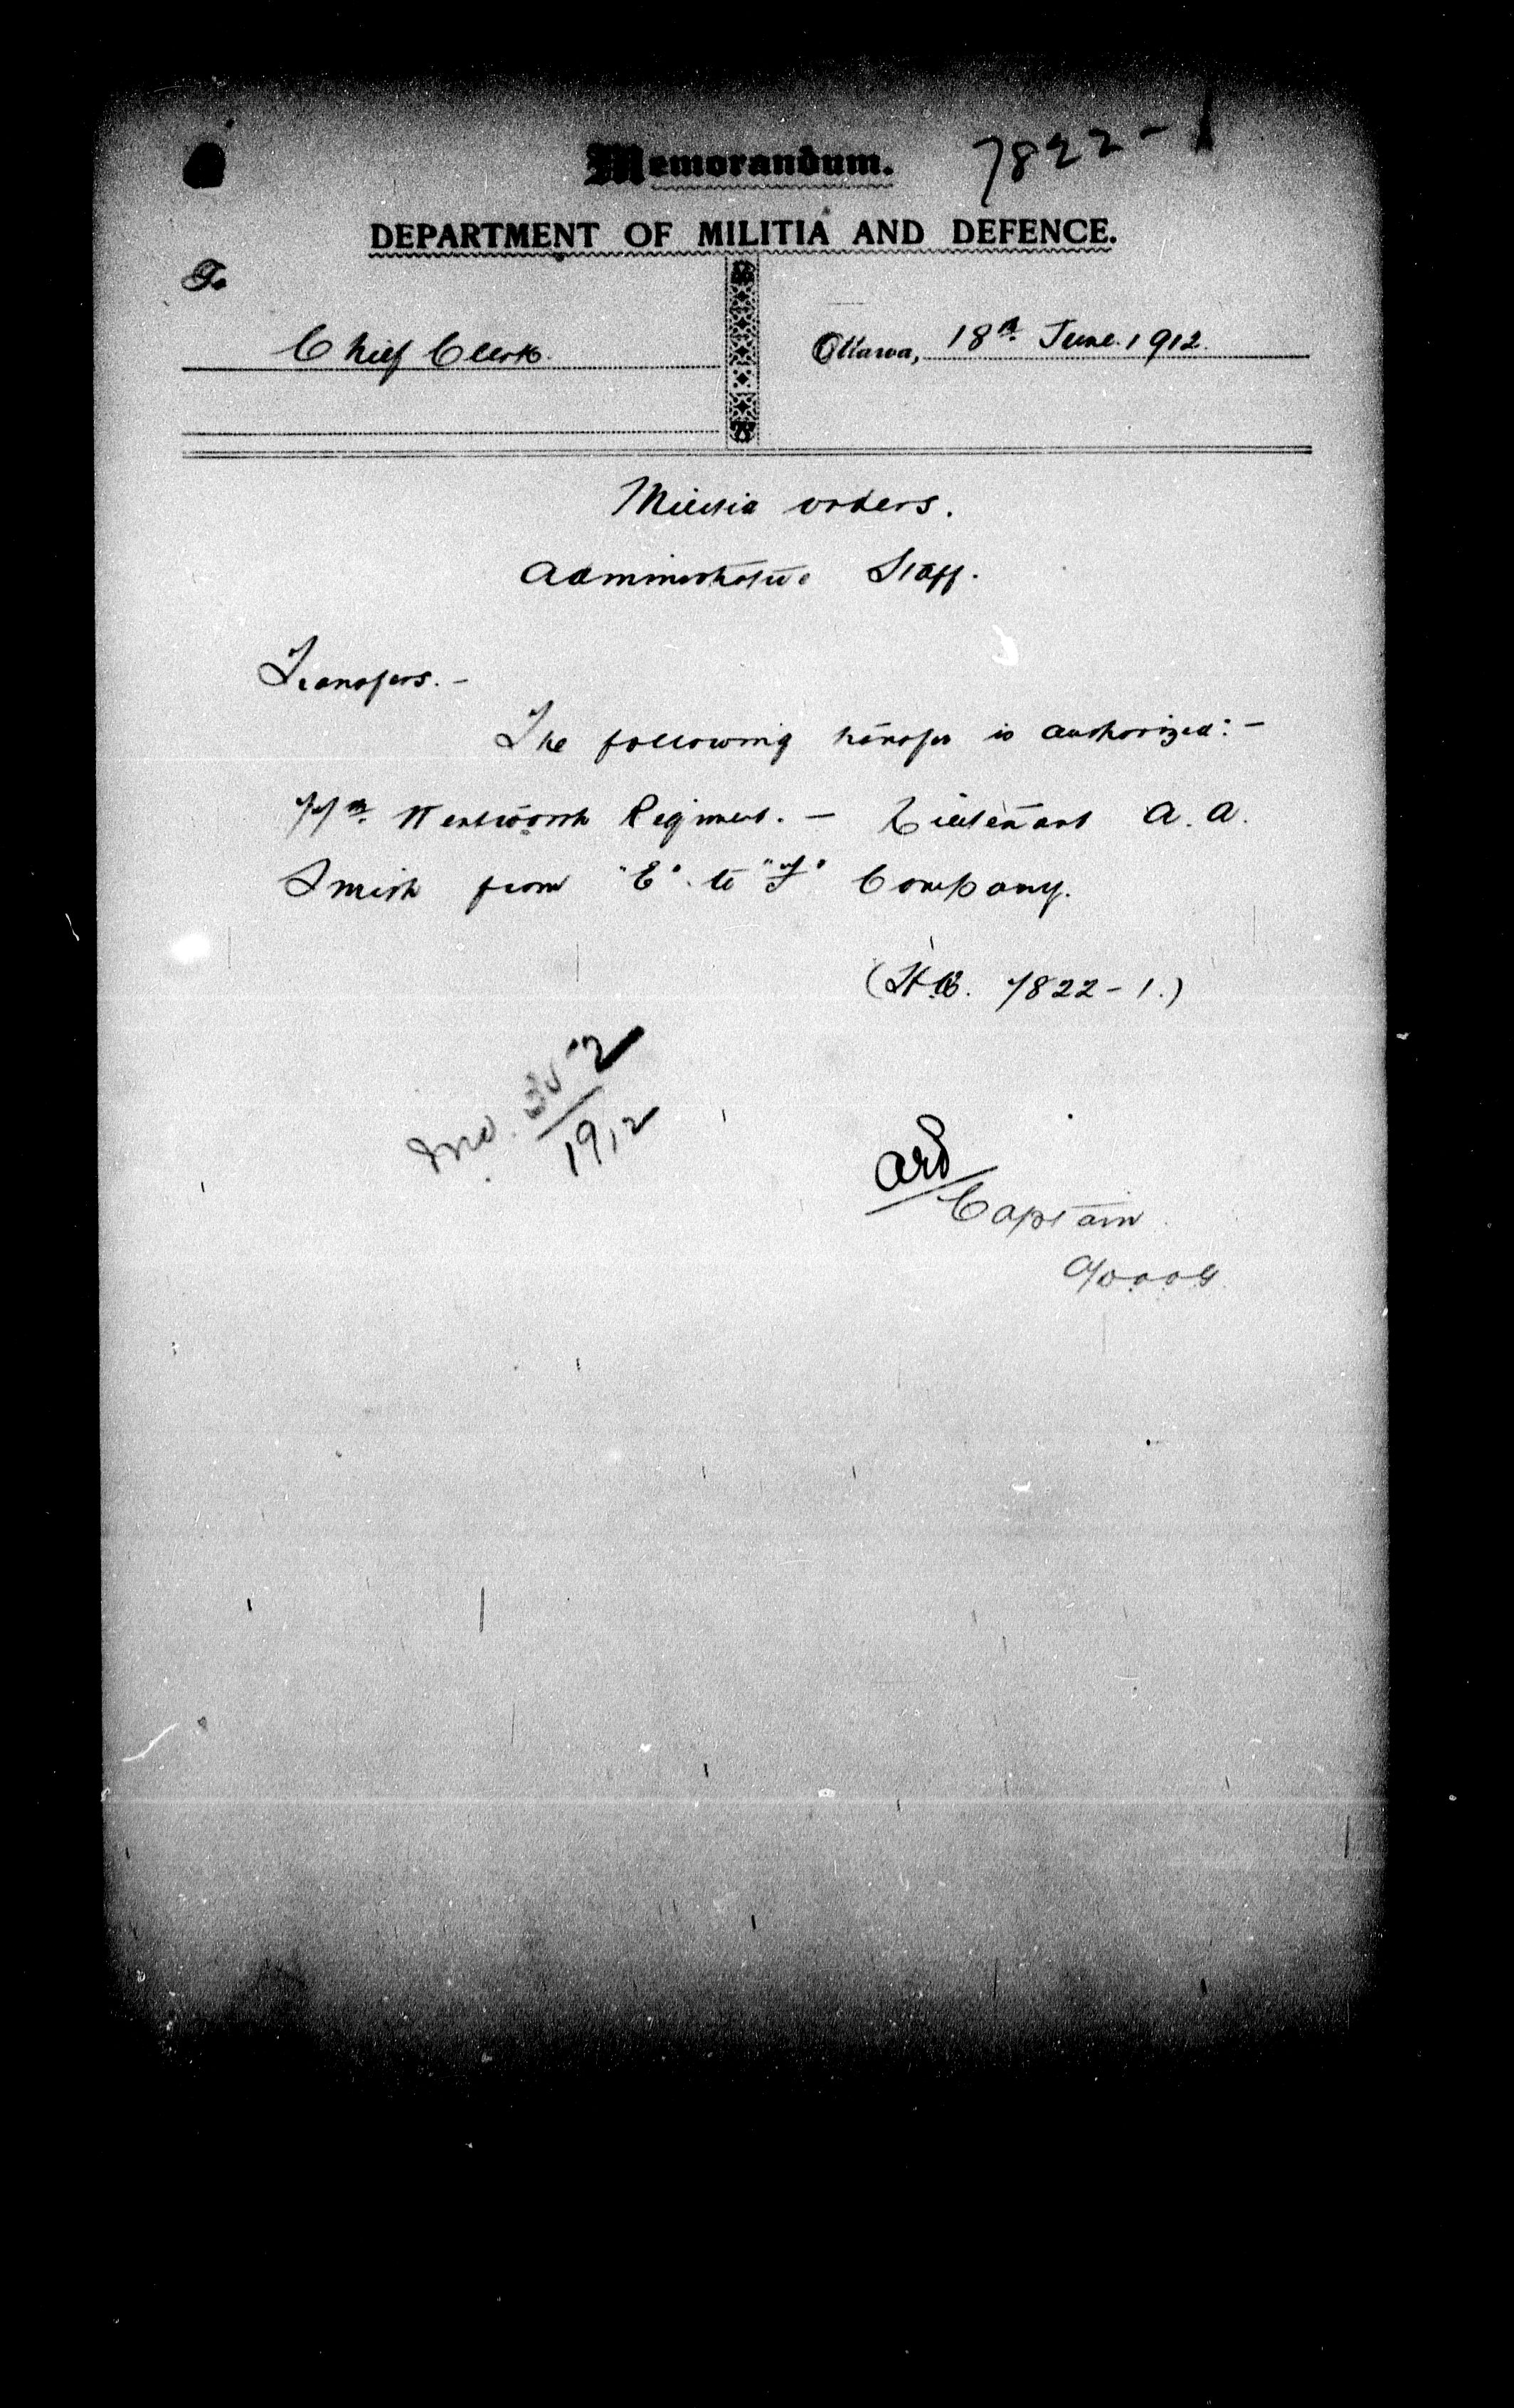 7822-1
Memorandum.
DEPARTMENT OF MILITIA AND DEFENCE.
To
Chief Clerk.
Ottawa, 18th June. 1912.
Militia orders.
Administrative Staff.
Transfers. -
The following transfer is authorized: -
77th. Wentworth Regiment. - Lieutenant A. A.
Smith from "E" to "F" Company.
(H.Q. 7822-1.)
352
1912
Captain